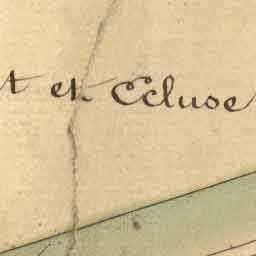 t et Ecluse